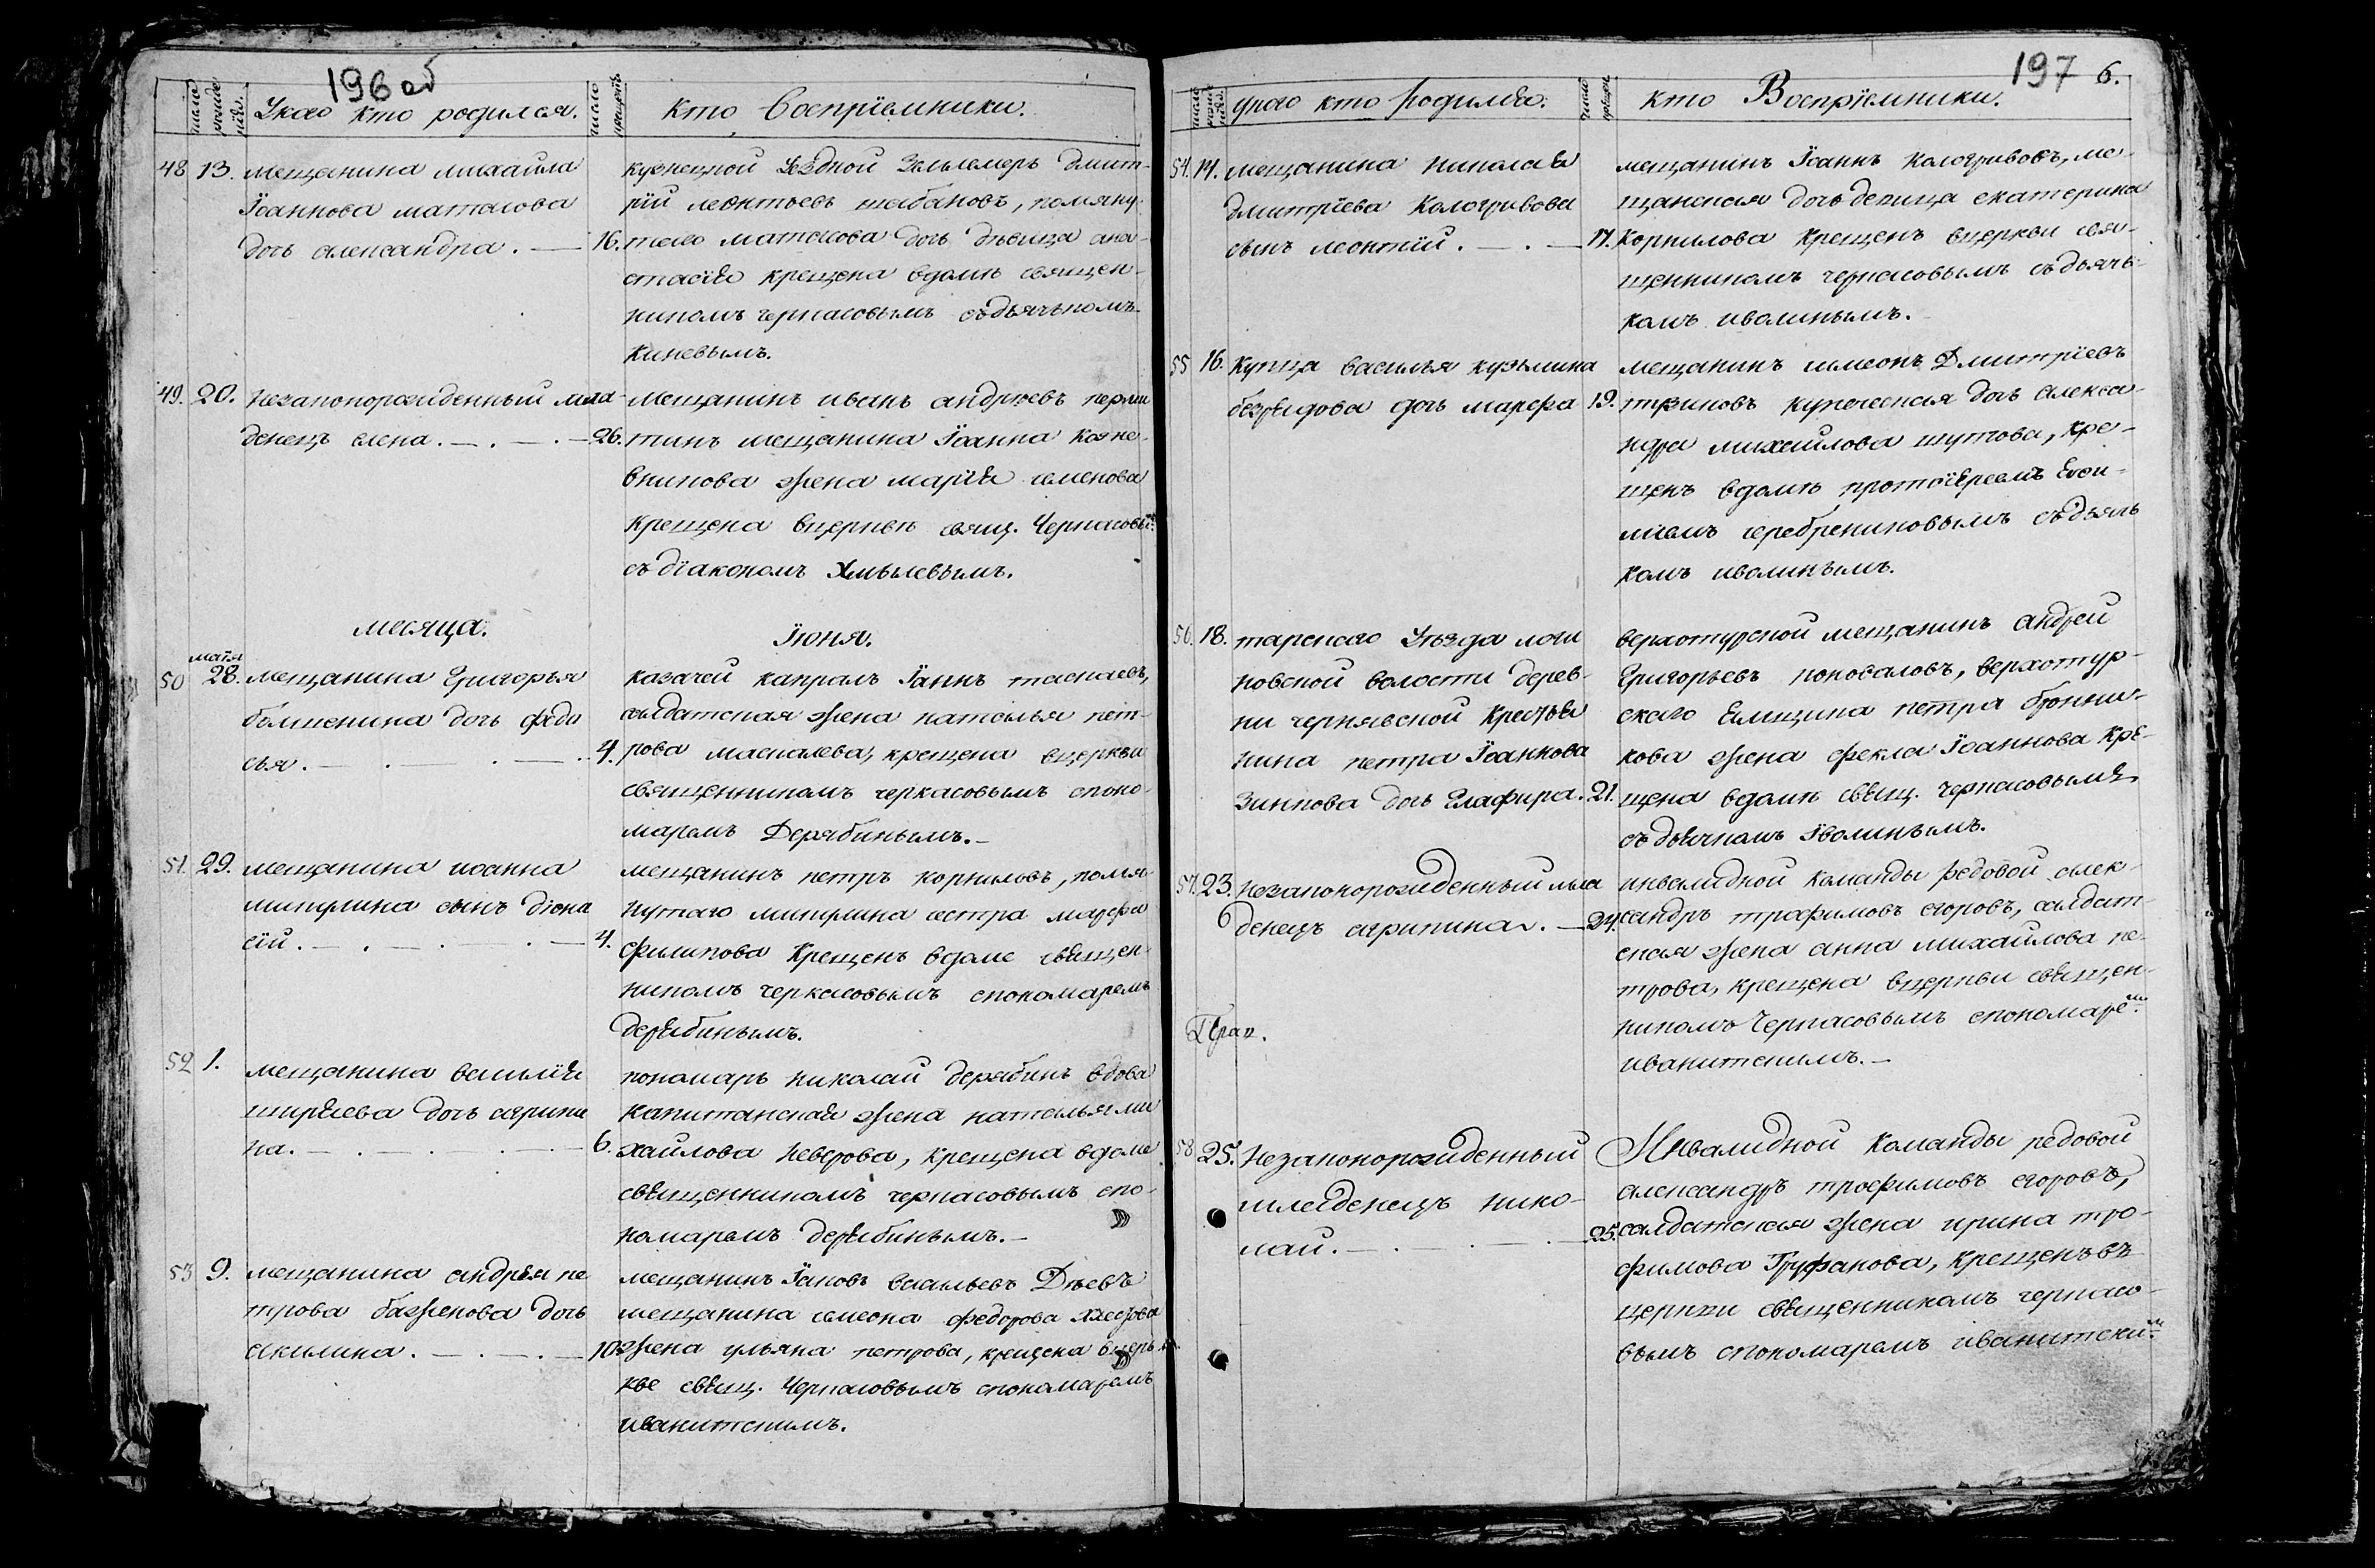 196 об
число рожде нія.
У каго кто родился.
число крещенія
кто Воспріемники.
48
13.
мещанина михаила
Іоаннова
дочь александра.
16.
кузнецкой уездной Землемеръ дмит-
рій леонтьевъ шабановъ, помяну-
таго дочь девица ана-
стасія крещена вдоме священ-
никомъ черкасовымъ съдьячькомъ
Киневымъ.
49.
20.
Незаконорожденный мла-
денецъ елена.
26.
мещанинъ иванъ андреевъ
мещанина Іоанна
жена марія семенова
крещена вцеркве свящ. Черкасовы м:
съ діакономъ Хмылевымъ.
месяца.
Іюня.
50
маія
28.
мещанина Григорья
дочь федо
сья.
4.
казачей капралъ
салдатская жена наталья пет-
рова крещена вцеркви
священникомъ черкасовымъ споно-
маремъ Дерябинымъ.
51.
29.
мещанина иоанна
сынъ діони
сій.
4.
мещанинъ петръ корниловъ, помя-
нутаго сестра марфа
филипова Крещенъ вдоме священ-
никомъ черкасовымъ спономаремъ
дерябинымъ.
52
1.
мещанина василія
ширяева дочь агрипи
на.
6.
пономарь николай дерябинъ вдова
капитанская жена наталья ми
хайлова Неверова, крещена вдоме
священникомъ черкасовымъ спо-
номаремъ дерябинымъ.
53
9.
мещанина андрея пе
трова баженова дочь
акилина.
10.
мещанинъ Іаковъ васильевъ Деевъ
мещанина симеона федорова
жена ульяна петрова, крещена вцерь-
кве свящ. Черкасовымъ спономаремъ
иванитскимъ.
197 6.
число рожде нія.
У каго кто родился.
число крещен
кто Воспріемники.
54.
14.
мещанина николая
дмитріева Кологривова
сынъ леонтій.
17.
мещанинъ Іоаннъ кологривовъ, ме-
щанская дочь девица екатерина
Корнилова Крещенъ вцеркви свя-
щенникомъ черкасовымъ съдьячь-
комъ иволинымъ.
55
16.
Купца василья кузьмина
безрядова дочь марфа
19.
мещанинъ симеонъ Дмитріевъ
купеческая дочь алекса-
ндра михайлова шутова, кре-
щенъ вдоме протоіереемъ Евѳи-
міемъ серебрениковымъ съдьячь
комъ иволинымъ.
56.
18.
тарскаго Уезда логи
новской волости дерев-
ни чернявской Крестья
нина петра Іоаннова
Зинкова дочь Глафира.
21.
верхотурской мещанинъ андрей
Григорьевъ коноваловъ, верхотур-
скаго петра бронни-
кова жена фекла Іоаннова Кре-
щена вдоме свящ. черкасовымъ
съ дьячкомъ Іволинымъ.
57.
23.
Незаконорожденный мла
денецъ агрипина.
24.
инвалидной команды рядовой алек-
сандръ трофимовъ егоровъ, салдат-
ская жена анна михайлова пе-
трова, крещена вцеркви священ-
никомъ Черкасовымъ спономаре м:
иванитскимъ.
58
25.
Незаконорожденный
младенецъ нико-
лай.
25.
Инвалидной Команды рядовой
александръ трофимовъ егоровъ,
салдатская жена ирина тро-
фимова Труфанова, Крещенъ въ
церкви священникомъ черкасо-
вымъ спономаремъ иванитски м: